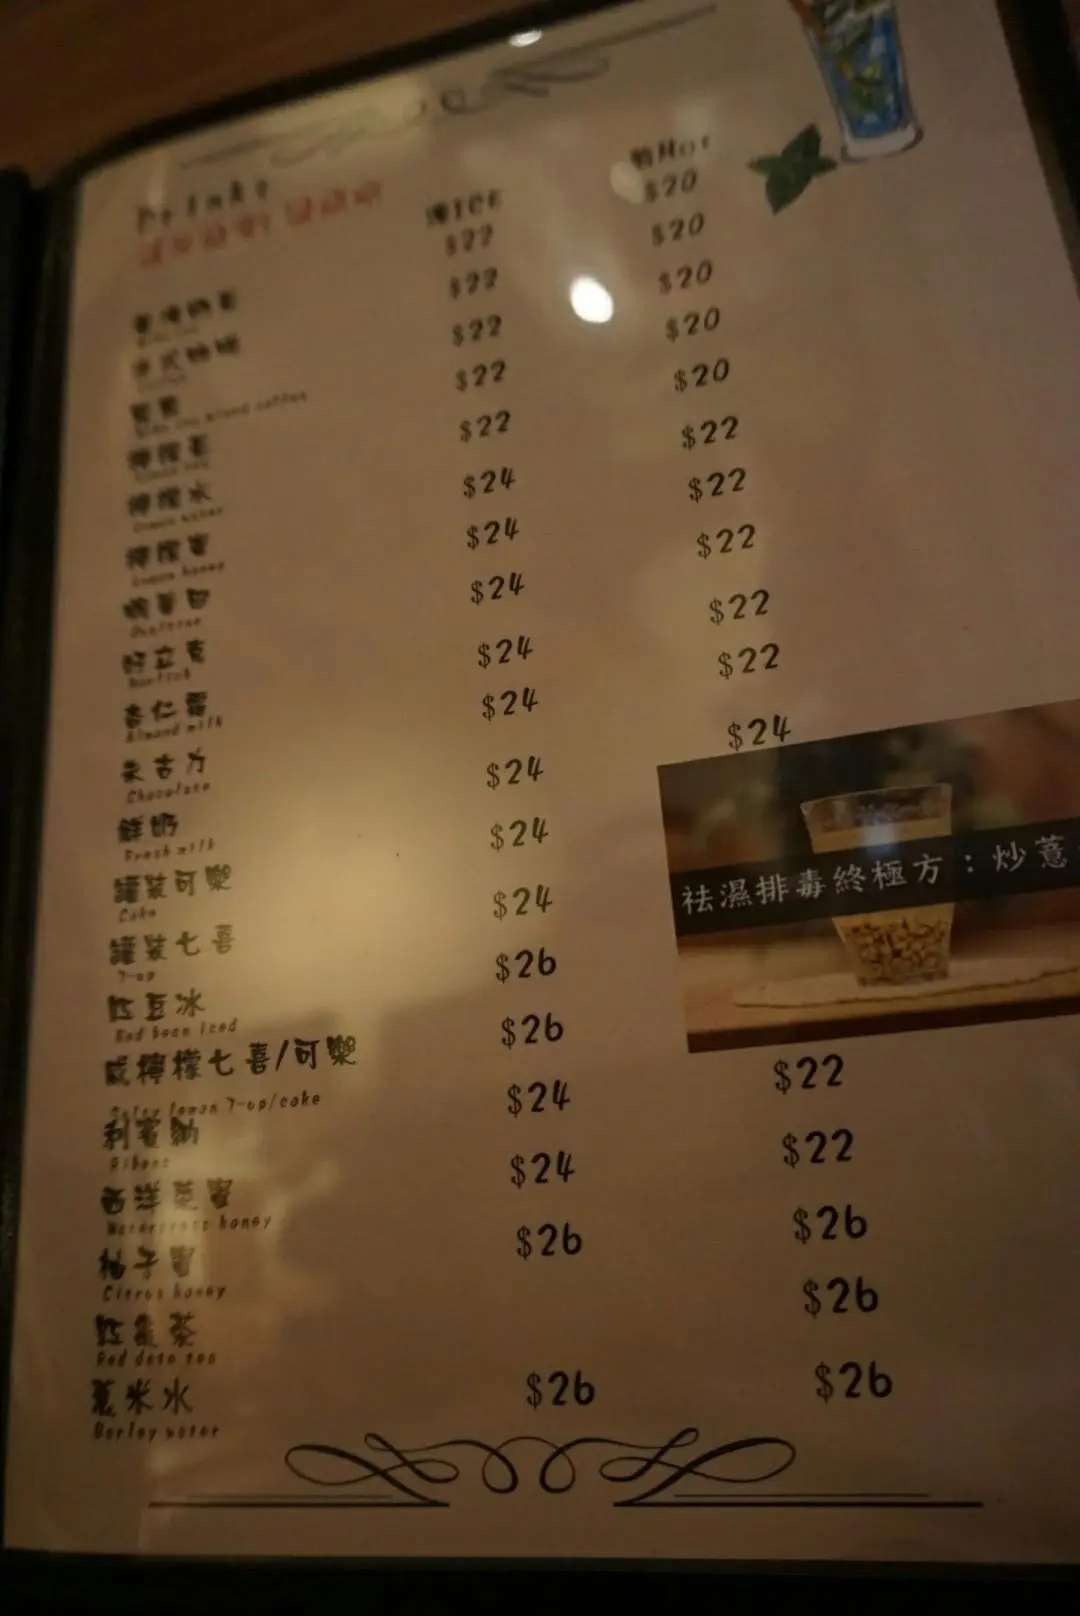 Drinks
凍ICE
熱Hot
$22 $20
港式奶茶
$22 $20
港式咖啡
Coffee
$22 $20
鴛鴦
Milk tea mixed coffee
$22 $20
檸檬茶
Lemon tea
$22 $20
檸檬水
Lemon water
$24 $22
檸檬蜜
Lemon honey
$24 $22
Ovaltine
$24 $22
好立克
Horlick
$24 $22
杏仁霜
Almond milk
$24 $22
朱古力
Chocolate
$24 $24
鮮奶
Fresh milk
$24
罐裝可樂
Coke
$24
罐裝七喜
7-up
$26
紅豆冰
Red bean iced
$26
咸檸檬七喜/可樂
Salty lemon 7-up/coke
$24 $22
利賓納
Ribena
$24 $22
西洋菜蜜
Watercress honey
$26 $26
柚子蜜
Citrus honey
$26
紅棗茶
Red date tea
$26 $26
薏米水
Barley water
祛濕排毒終極方：炒薏